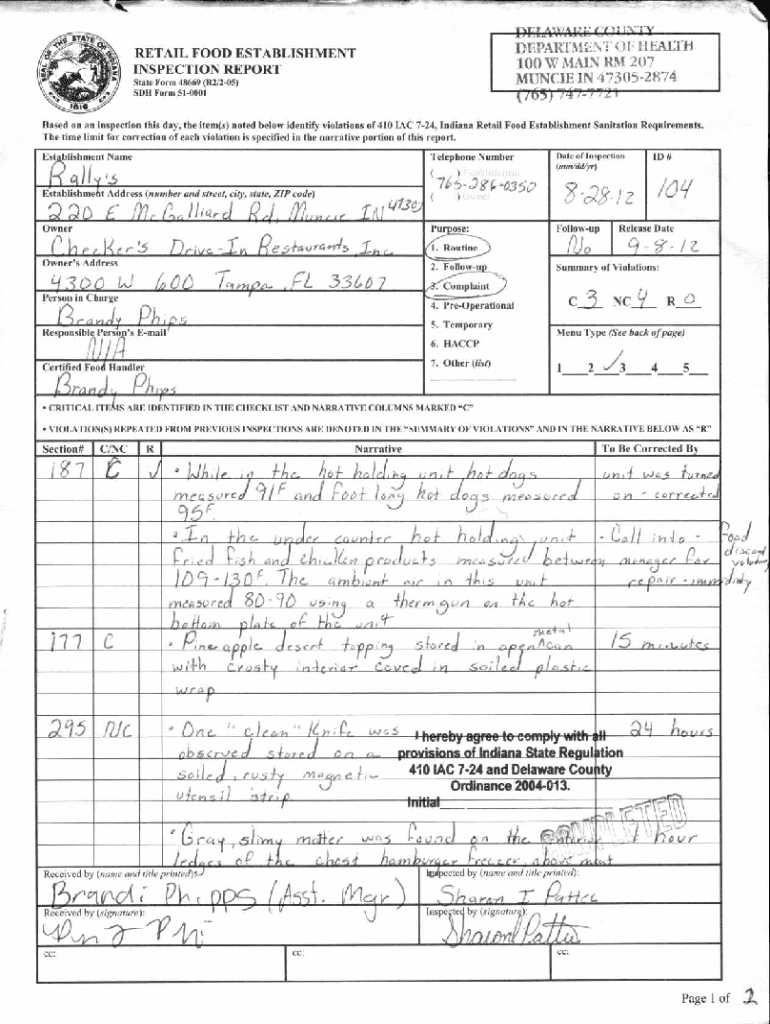 DELAWARE COUNTY
DEPARTMENT OF HEALTH
100 W MAIN RM 207
MUNCIE IN 47305-2874
(765) 747-7721
RETAIL FOOD ESTABLISHMENT
INSPECTION REPORT
State Form 48669 (R2/2-05)
SDH Form 51-0001
Based on an inspection this day, the item(s) noted below identify violations of 410 IAC 7-24, Indiana Retail Food Establishment Sanitation Requirements.
The time limit for correction of each violation is specified in the narrative portion of this report.
Establishment Name
Rally's
Telephone Number
( ) Establishment
765-286-0350
( ) Owner
Date of Inspection
(mm/dd/yr)
8-28-12
ID #
104
Establishment Address (number and street, city, state, ZIP code)
220 E McGalliard Rd, Muncie IN 47303
Owner
Checker's Drive-In Restaurants Inc.
Owner's Address
4300 W 600 Tampa, FL 33607
Person in Charge
Brandy Phips
Responsible Person's E-mail
N/A
Certified Food Handler
Brandy Phips
Purpose:
1. Routine
2. Follow-up
3. Complaint
4. Pre-Operational
5. Temporary
6. HACCP
7. Other (list)
Follow-up
No
Release Date
9-8-12
Summary of Violations:
C 3 NC 4 R 0
Menu Type (See back of page)
1 2 ✓ 3 4 5
• CRITICAL ITEMS ARE IDENTIFIED IN THE CHECKLIST AND NARRATIVE COLUMNS MARKED "C"
• VIOLATION(S) REPEATED FROM PREVIOUS INSPECTIONS ARE DENOTED IN THE "SUMMARY OF VIOLATIONS" AND IN THE NARRATIVE BELOW AS "R"
Section# C/NC R Narrative To Be Corrected By
187 C ✓ • While in the hot holding unit hot dogs unit was turned
measured 91F and foot long hot dogs measured on - corrected
95F.
• In the under counter hot holding unit - Call into - Food
fried fish and chicken products measured between manager for discard
109-130F. The ambient air in this unit repair - immediately
measured 80-90 using a thermgun on the hot
bottom plate of the unit
177 C • Pineapple desert topping stored in open metal can 15 minutes
with crusty interior coved in soiled plastic
wrap
295 N/C • One "clean" Knife was 24 hours
observed stored on a
soiled, rusty magnetic
utensil strip
I hereby agree to comply with all
provisions of Indiana State Regulation
410 IAC 7-24 and Delaware County
Ordinance 2004-013.
Initial
COMPLETED
• Gray, slimy matter was found on the interior 1 hour
ledges of the chest hamburger freezer, above meat
Received by (name and title printed):
Brandi Phipps (Asst. Mgr)
Inspected by (name and title printed):
Sharon I Pattee
Received by (signature):
Inspected by (signature):
Sharon Pattee
cc: cc: cc:
Page 1 of 2